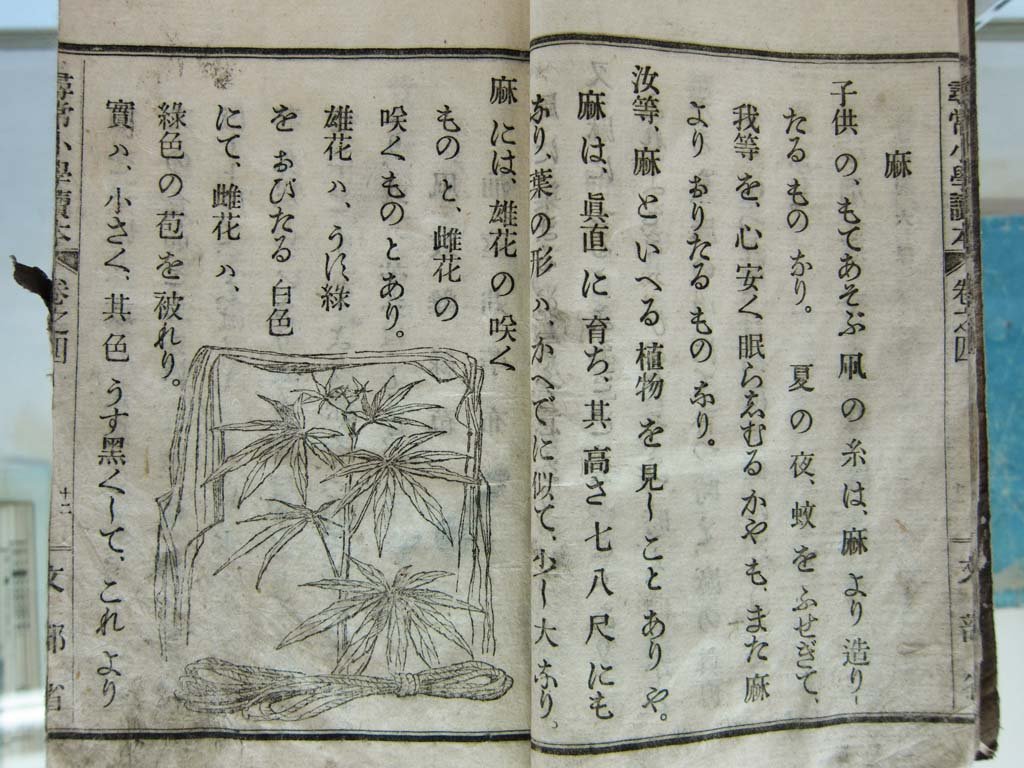 尋常小學讀本 卷之四
文部省
麻
子供の、もてあそぶ凧の糸は、麻より造りし
たるものなり。夏の夜、蚊をふせぎて、
我等を、心安く眠らゑむるかやも、また麻
よりおりたるものなり。
汝等、麻といへる植物を見しことありや。
麻は、眞直に育ち、其高さ七八尺にも
なり、葉の形ハ、かへでに似て、少し大なり。
麻には、雄花の咲く
ものと、雌花の
咲くものとあり。
雄花ハ、うす綠
をおびたる白色
にて、雌花ハ、
綠色の苞を被れり。
實ハ、小さく、其色うす黑くして、これより
尋常小學讀本 卷之四
十二
文部省